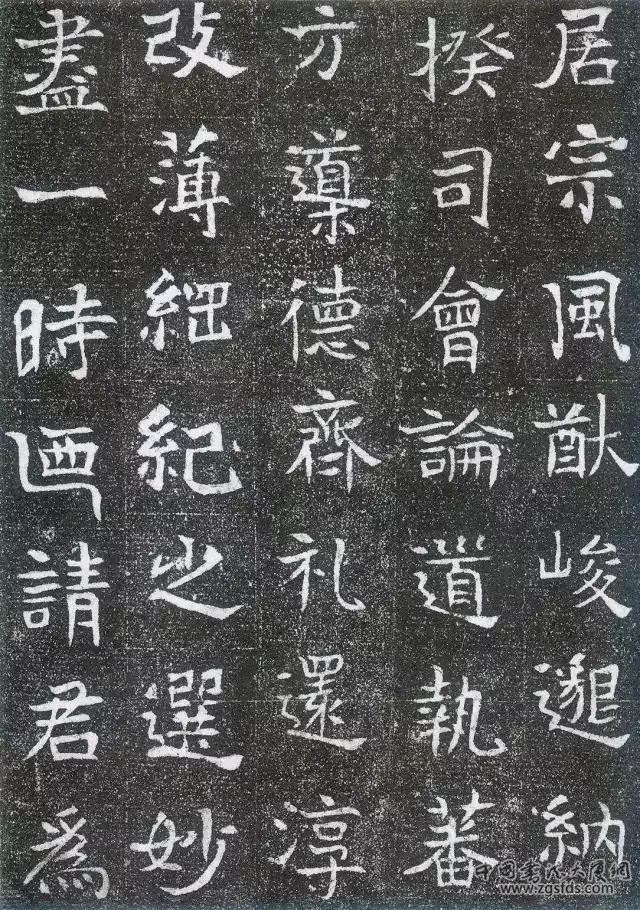 居宗風猷峻邈納
揆司會論道執蕃
方導德齊礼還淳
改薄綱紀之選妙
盡一時迺請君爲
www.zgsfds.com